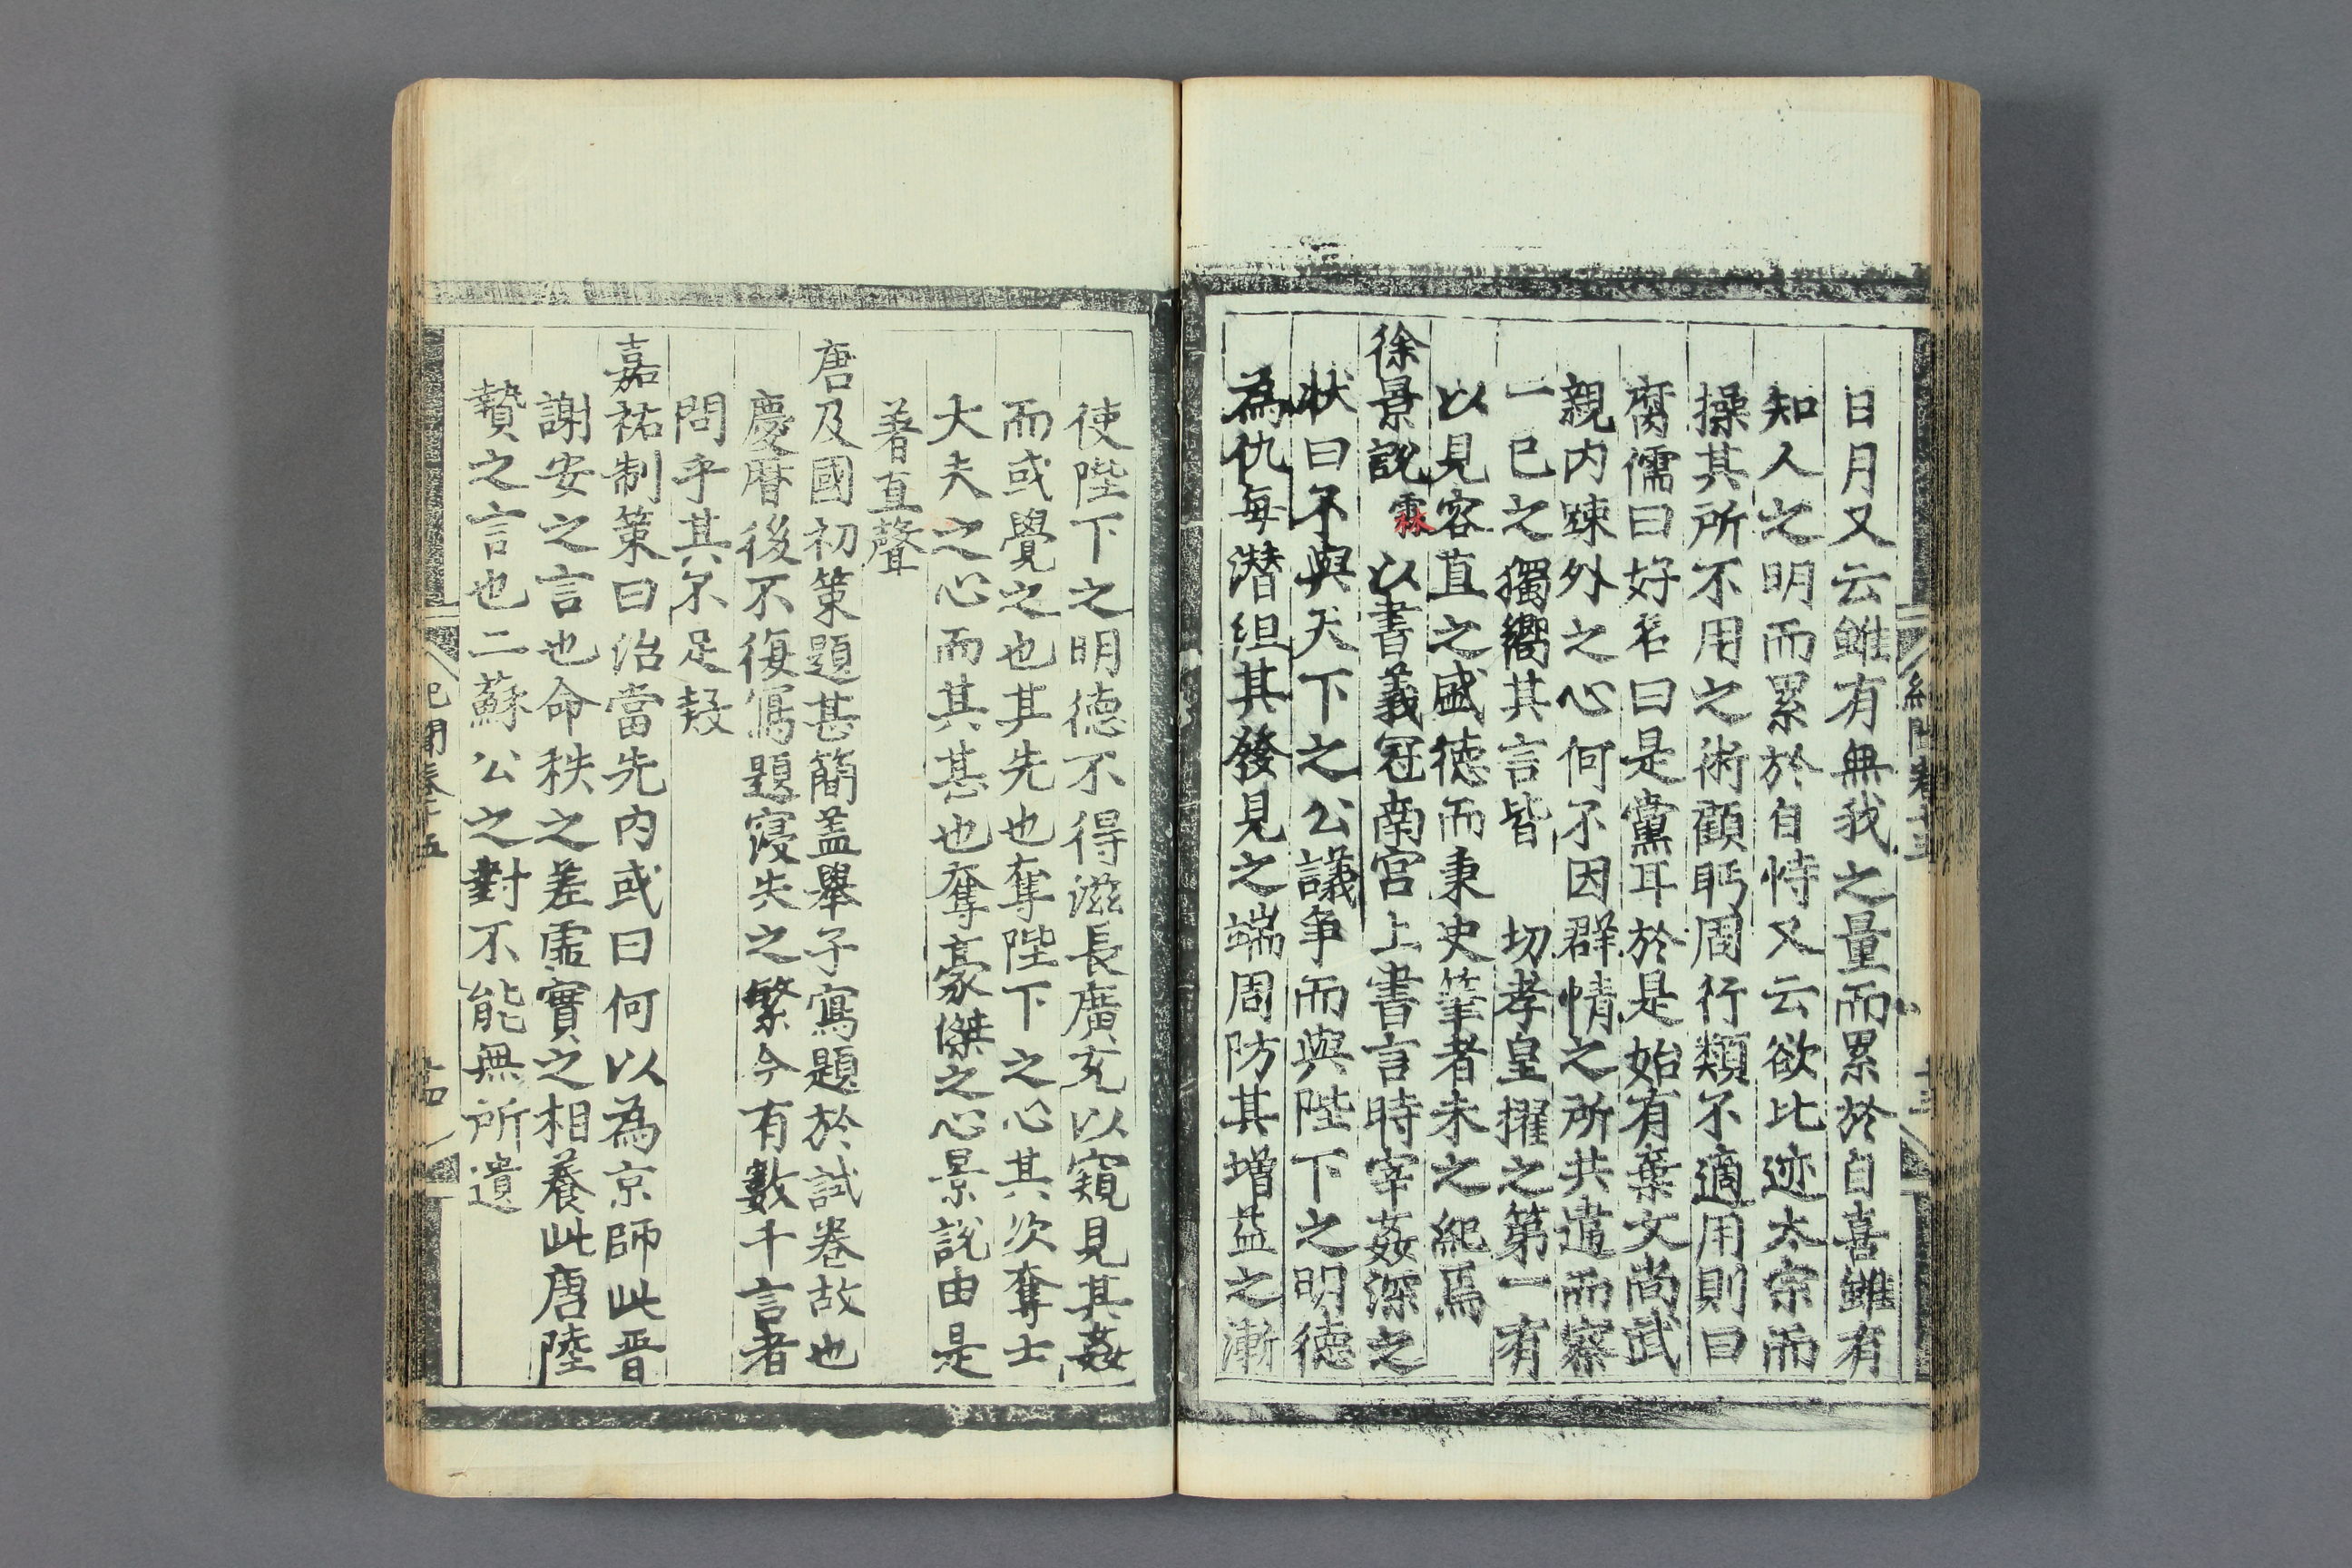 日月又云雖有無我之量而累於自喜雖有
知人之明而累於自恃又云欲比迹太宗而
操其所不用之術顧眄周行類不適用則曰
腐儒曰好名曰是黨耳於是始有棄文尚武
親内踈外之心何不因群情之所共違而察
一已之獨嚮其言皆 切孝皇擢之第一有
以見容直之盛徳而秉史筆者未之紀焉
徐景說 霖 以書義冠南宫上書言時宰姦深之
狀曰不與天下之公議争而與陛下之明徳
為仇每潛狙其發見之端周防其増益之漸
使陛下之明徳不得滋長廣充以窺見其姦
而或覺之也其先也奪陛下之心其次奪士
大夫之心而其甚也奪豪傑之心景說由是
著直聲
唐及國初策題甚簡盖舉子寫題於試卷故也
慶曆後不復寫題寖失之繁今有數千言者
問乎其不足疑
嘉祐制策曰治當先内或曰何以為京師此晋
謝安之言也命秩之差虚實之相養此唐陸
贄之言也二蘇公之對不能無所遺
紀聞卷十五